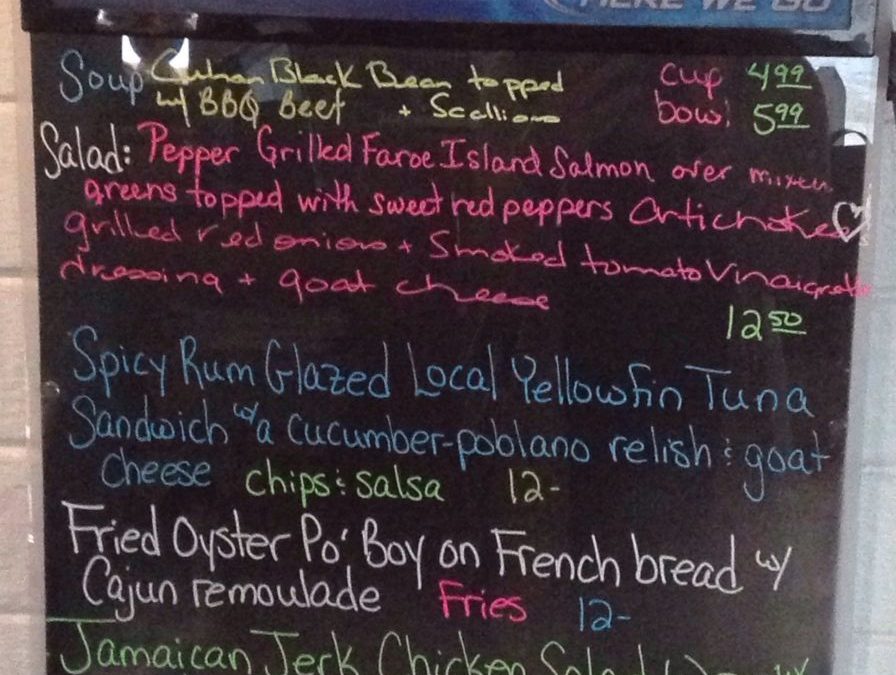 HERE WE GO
Soup Cuban Black Bean topped cup 4 99
w/ BBQ Beef + Scallions bowl 5 99
Salad: Pepper Grilled Faroe Island Salmon over mixed
greens topped with sweet red peppers artichokes
grilled red onions + Smoked tomato Vinaigrette
dressing + goat cheese
12 50
Spicy Rum Glazed Local Yellowfin Tuna
Sandwich w/ a cucumber-poblano relish & goat
cheese chips & salsa 12-
Fried Oyster Po' Boy on French bread w/
Cajun remoulade Fries 12-
Jamaican Jerk Chicken